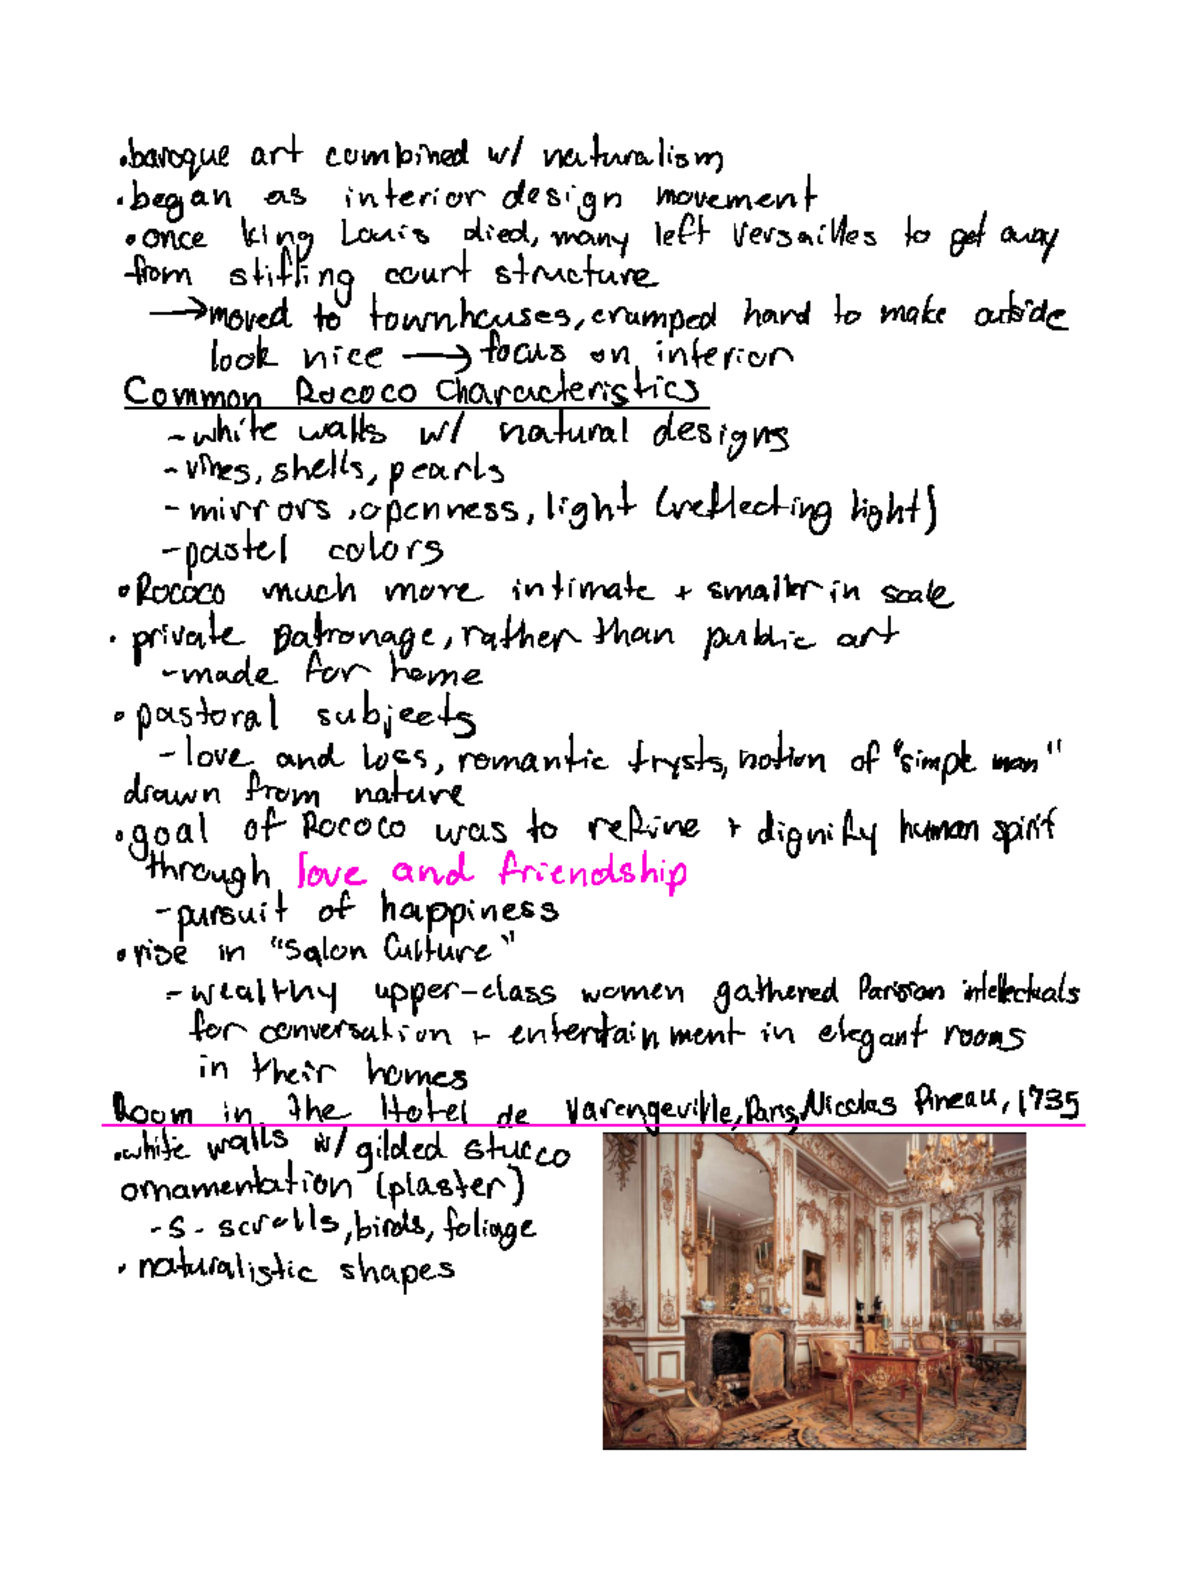 •baroque art combined w/ naturalism
•began as interior design movement
•once king Louis died, many left Versailles to get away
from stifling court structure
→moved to townhouses, cramped hard to make outside
look nice → focus on interior
Common Rococo Characteristics
-white walls w/ natural designs
-vines, shells, pearls
-mirrors, openness, light (reflecting light)
-pastel colors
•Rococo much more intimate + smaller in scale
•private patronage, rather than public art
-made for home
•pastoral subjects
-love and loss, romantic trysts, notion of "simple man"
drawn from nature
•goal of Rococo was to refine + dignify human spirit
through love and friendship
-pursuit of happiness
•rise in "Salon Culture"
-wealthy upper-class women gathered Parisian intellectuals
for conversation + entertainment in elegant rooms
in their homes
Room in the Hotel de Varengeville, Paris, Nicolas Pineau, 1735
•white walls w/ gilded stucco
ornamentation (plaster)
-S-scrolls, birds, foliage
•naturalistic shapes